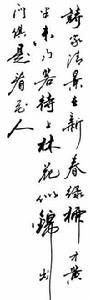 詩家清景在新春綠柳才黃
半未勻若待上林花似錦出
门俱是看花人